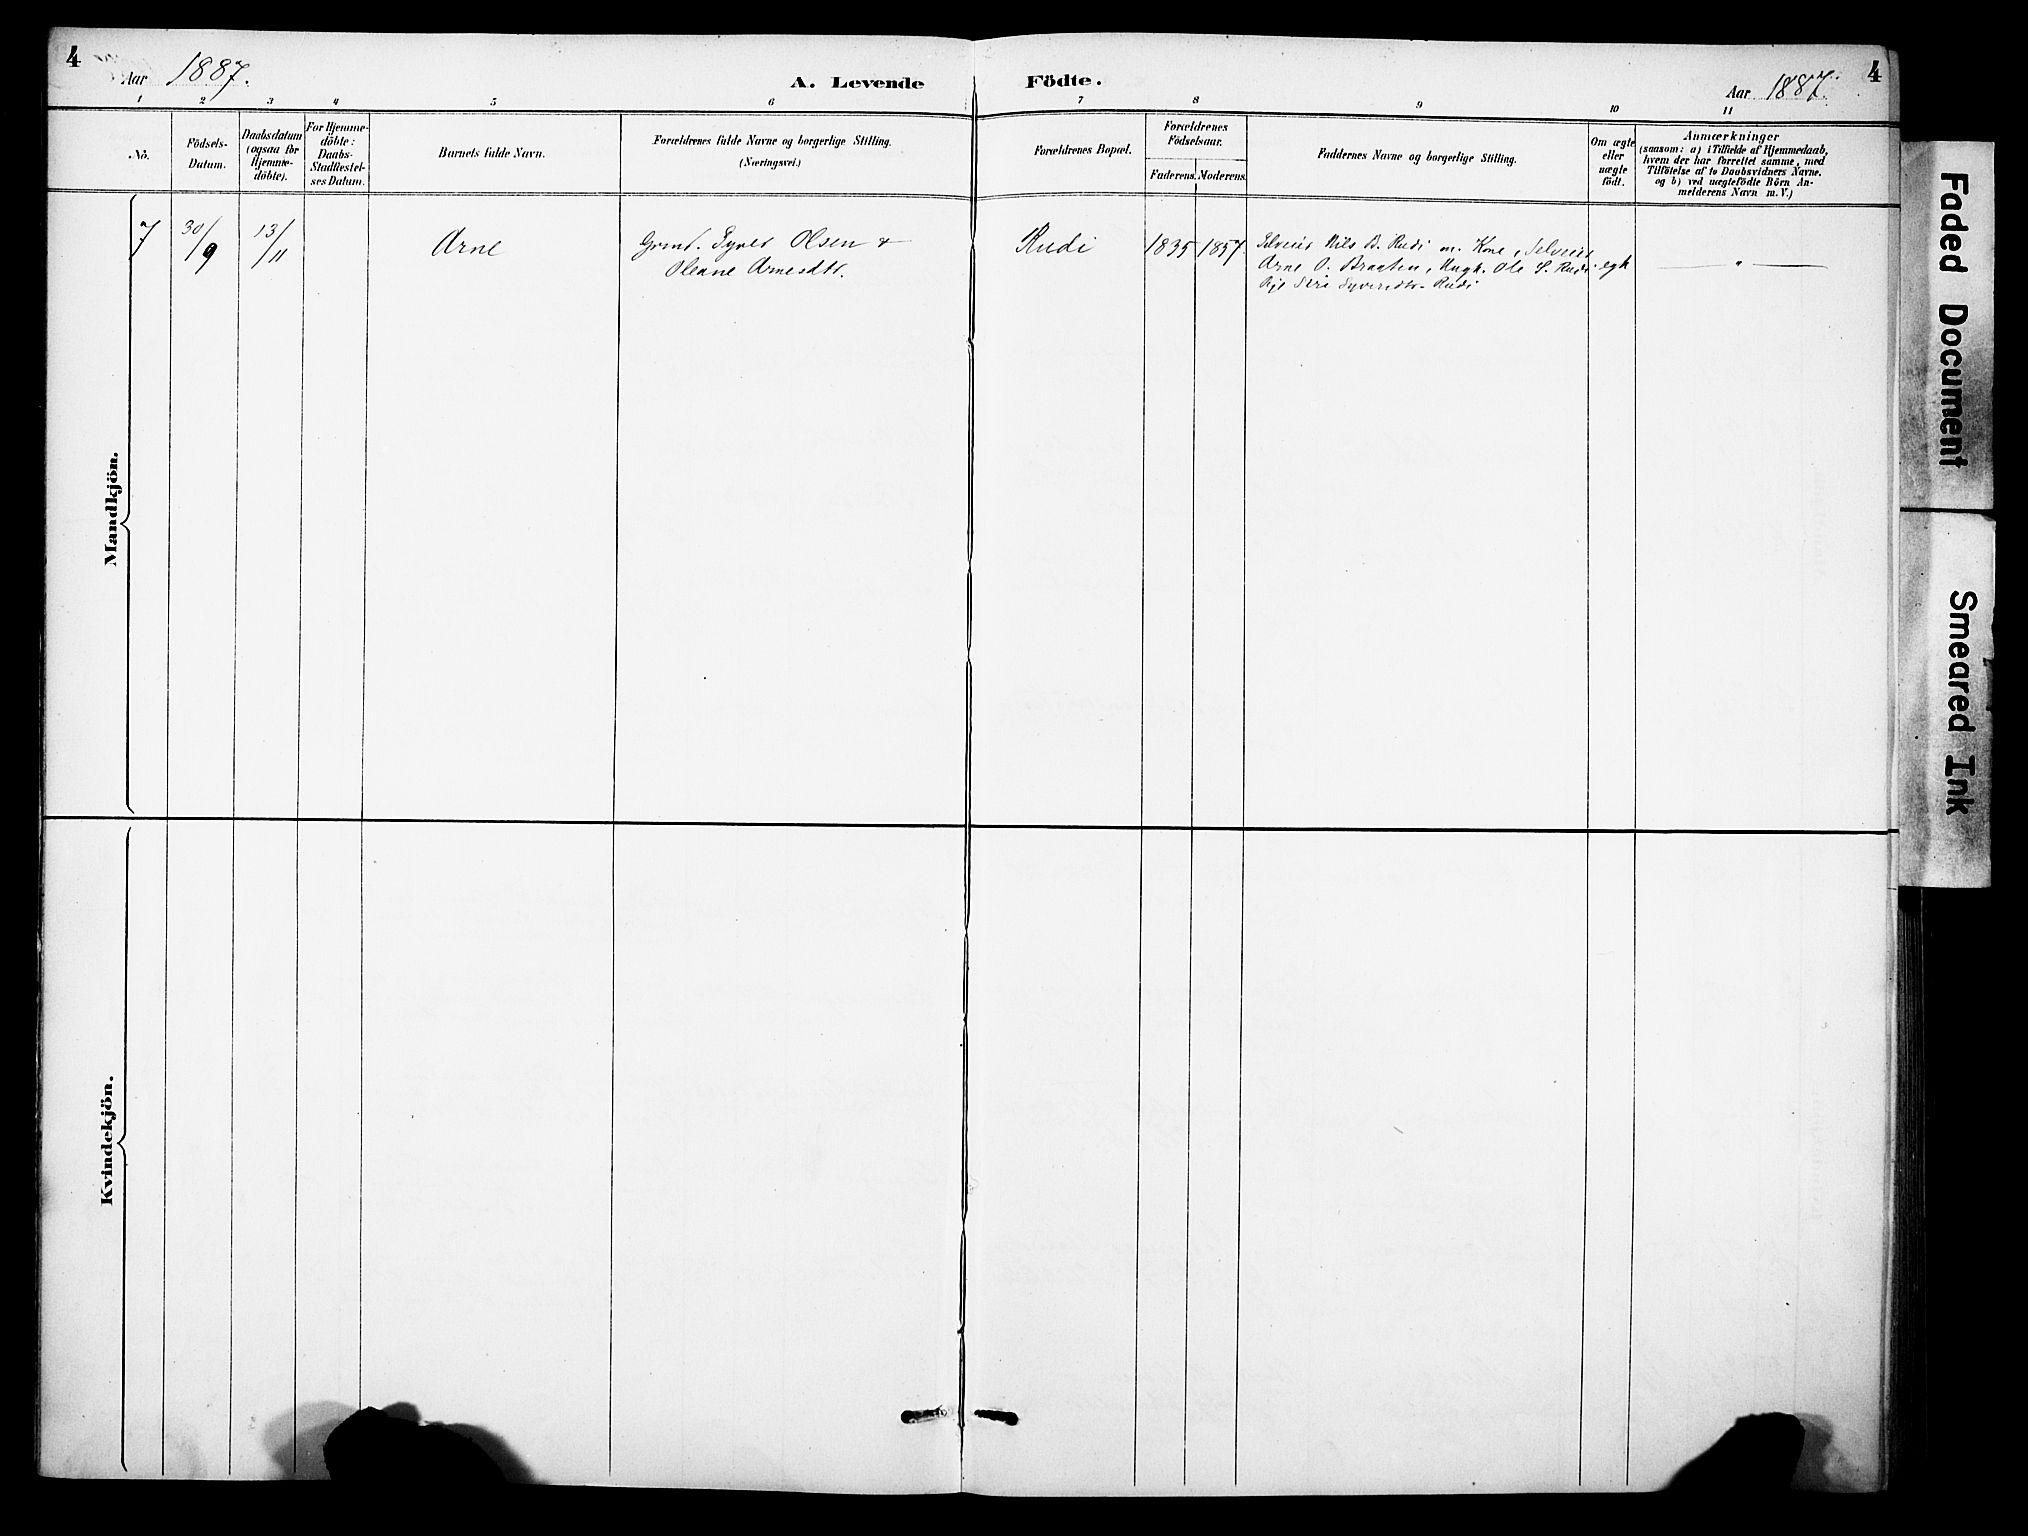 4
Aar 1887.
A. Levende Födte.
Aar 1887.
4
1 2 3 4 5 6 7 8 9 10 11
No.
Födsels-Datum.
Daabsdatum (ogsaa for Hjemme-döbte).
For Hjemme-döbte: Daabs-Stadfæstel-ses Datum.
Barnets fulde Navn.
Forældrenes fulde Navne og borgerlige Stilling.
(Næringsvei.)
Forældrenes Bopæl.
Forældrenes Födselsaar.
Faderens. Moderens.
Faddernes Navne og borgerlige Stilling.
Om ægte eller uægte födt.
Anmærkninger
(saasom: a) i Tilfælde af Hjemmedaab,
hvem der har forrettet samme, med
Tilföielse af to Daabsvidners Navne.
og b) ved uægtefödte Börn An-
melderens Navn m. V.)
Mandkjön.
7 30/9 13/11 Arne Grmd. Syver Olsen &
Oleane Arnesdtr.
Rudi 1835 1857. Selveier Nils B. Rudi m. Kone, Selveier
Arne O. Braaten, Ungk. Ole S. Rudi
Pige Siri Syversdtr. Rudi
egt — " —
Kvindekjön.
Faded Document
Smeared Ink